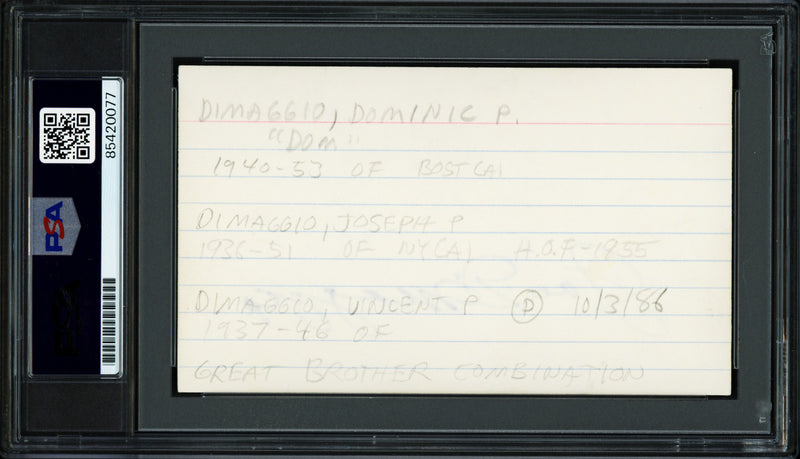 DIMAGGIO, DOMINIC P.
"DOM"
1940-53 OF BOST(A)
DIMAGGIO, JOSEPH P
1936-51 OF NY(A) H.O.F.-1955
DIMAGGIO, VINCENT P Ⓓ 10/3/86
1937-46 OF
GREAT BROTHER COMBINATION
PSA
85420077